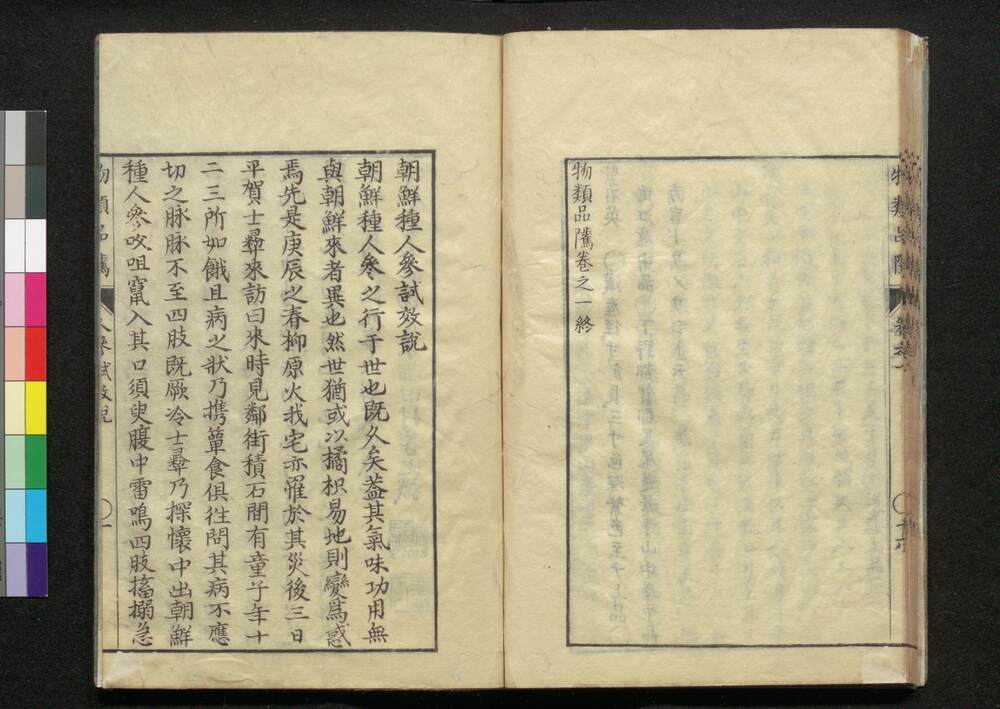 物類品隲卷之一終
朝鮮種人參試效說
朝鮮種人參之行于世也既久矣蓋其氣味功用無
與朝鮮來者異也然世猶或以橘枳易地則變爲惑
焉先是庚辰之春柳原火我宅亦罹於其災後三日
平賀士彝來訪曰來時見鄰街積石間有童子年十
二三所如餓且病之狀乃携簞食俱往問其病不應
切之脉脉不至四肢既厥冷士彝乃探懷中出朝鮮
種人參㕮咀竄入其口須臾腹中雷鳴四肢搐搦急
物類品隲
人參試效說
〇一